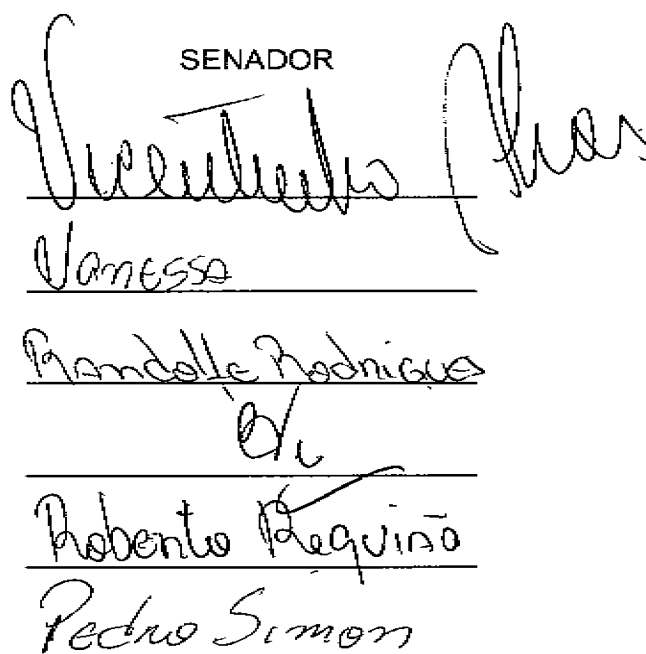 SENADOR
Vicentinho Alves
Vanessa
Randolfe Rodrigues
Roberto Requião
Pedro Simon